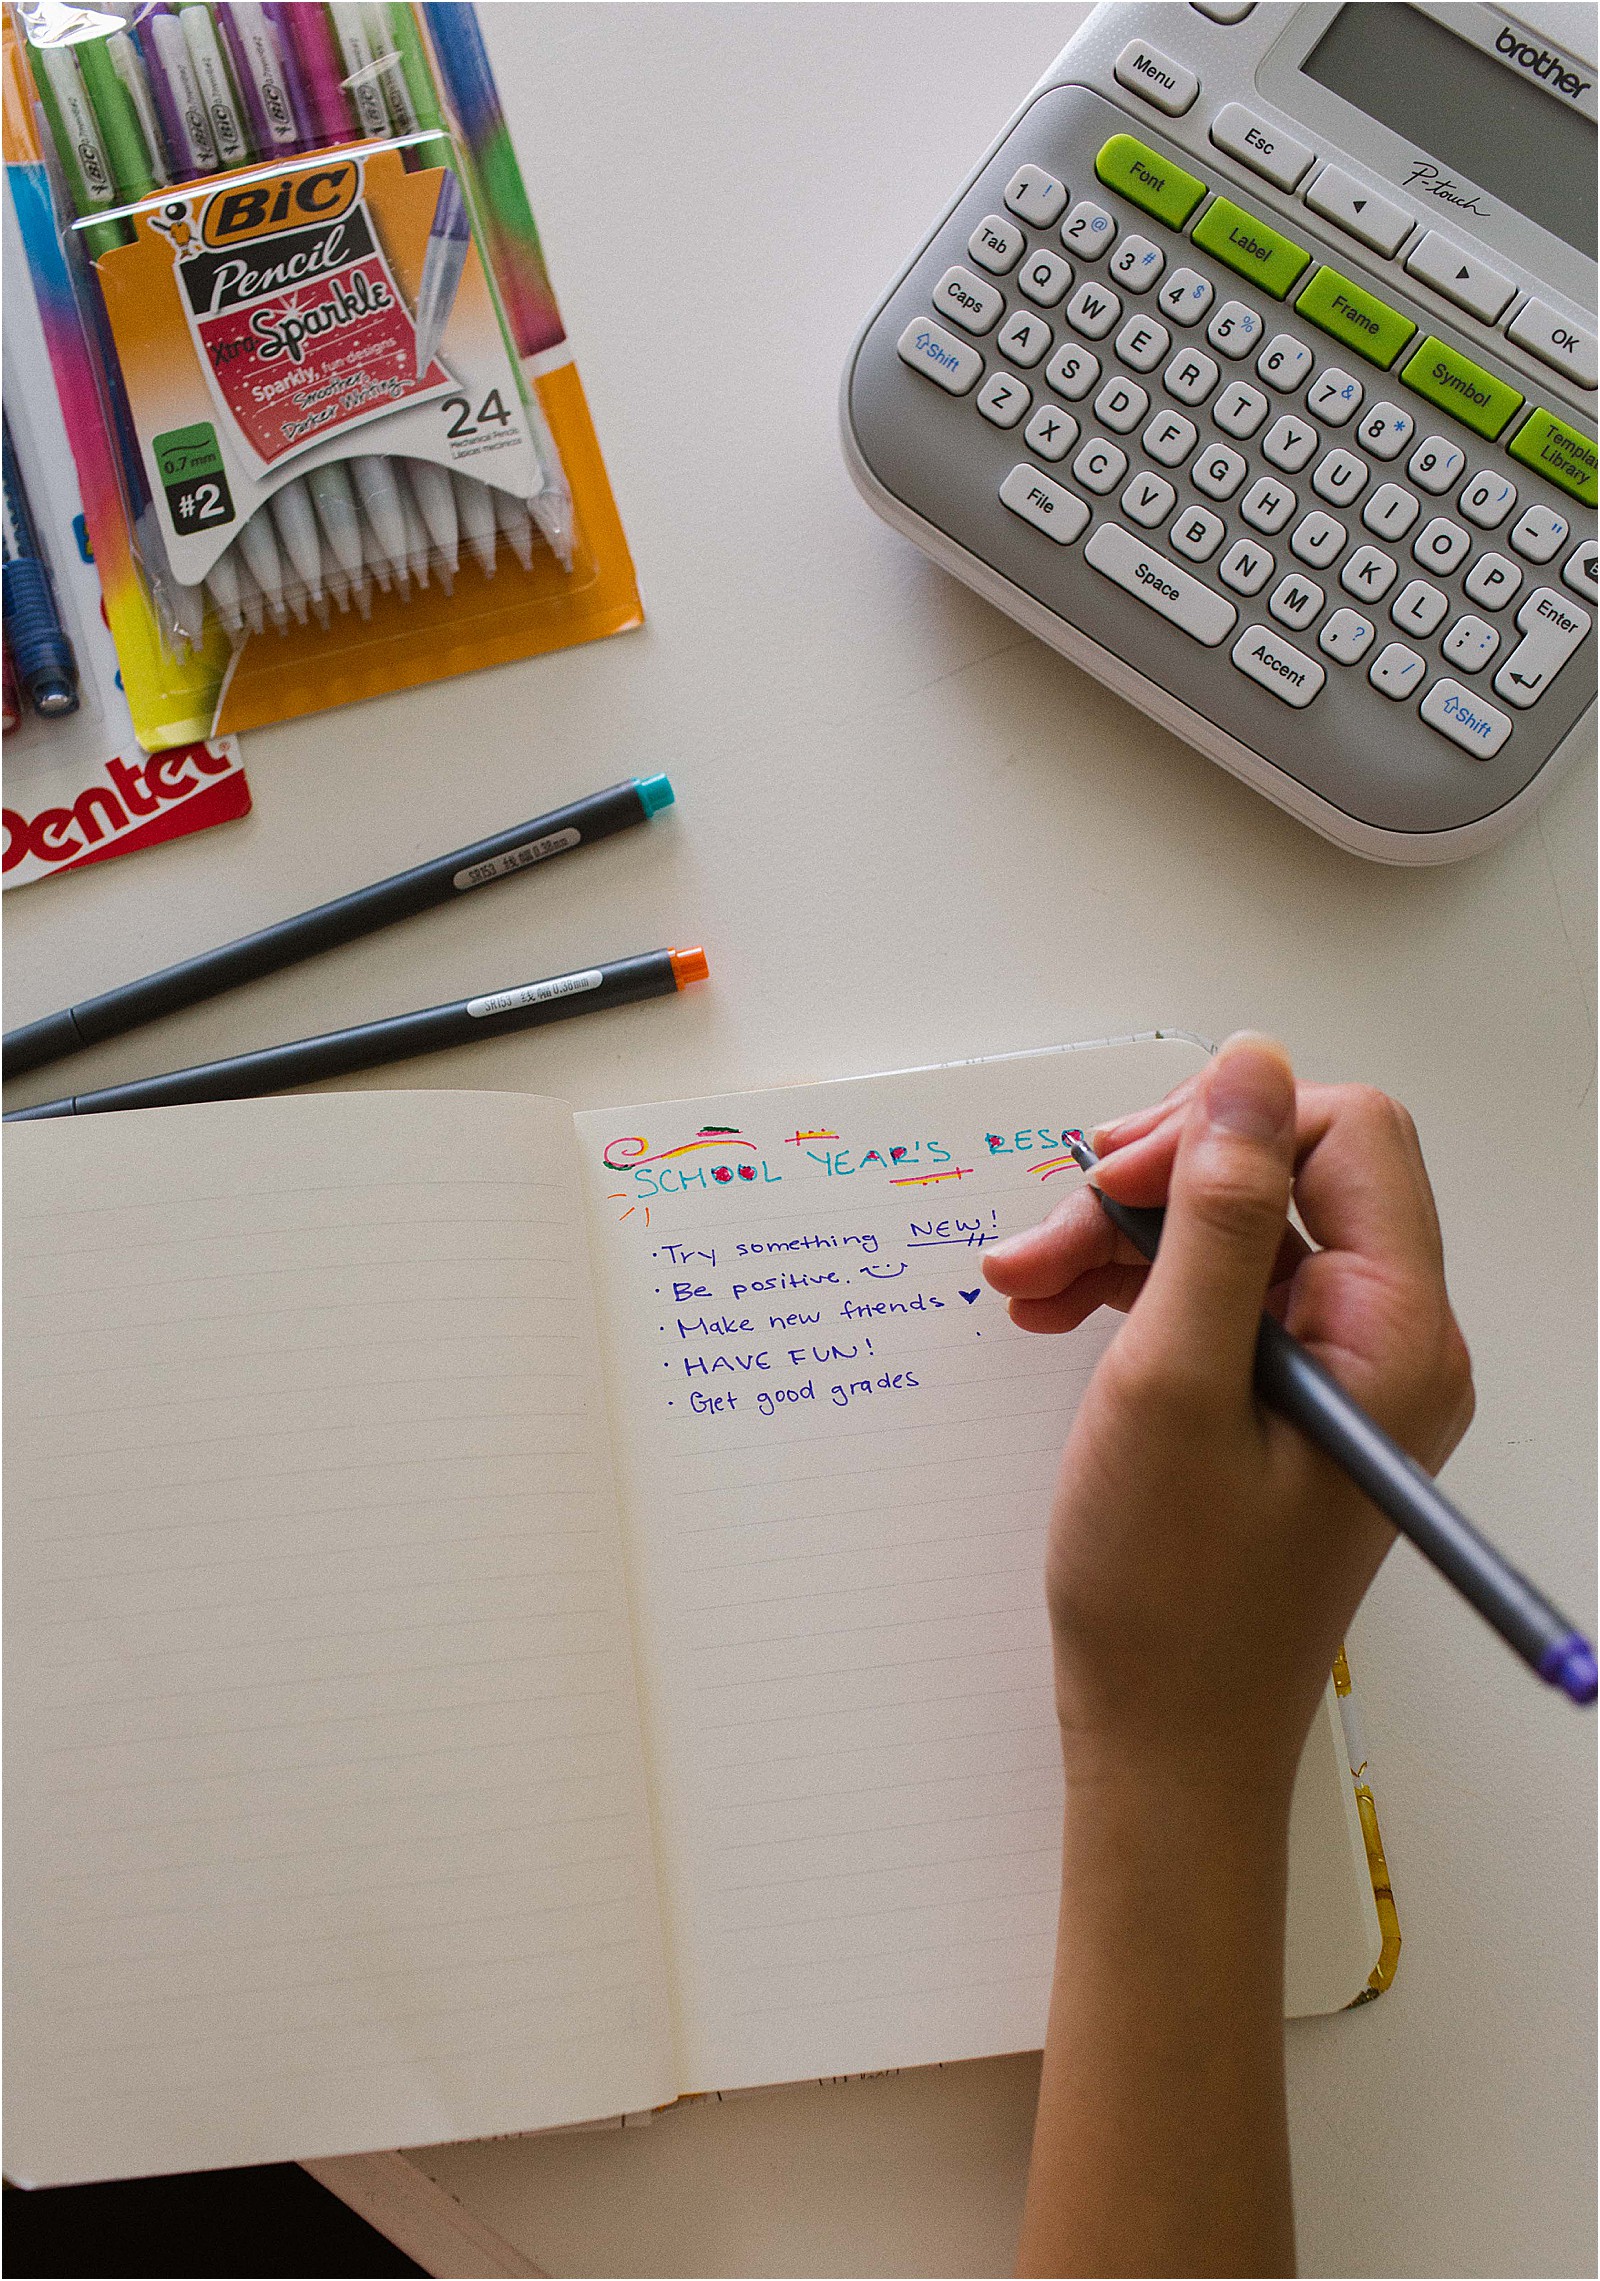 BIC
BIC
BIC
BIC
BIC
BIC
Pencil
Xtra Sparkle
Sparkly, fun designs
Smoother,
Darker Writing
24
Mechanical Pencils
Lápices mecánicos
0.7 mm
#2
Pentel®
brother
P-touch
Menu
Esc
OK
Font
Label
Frame
Symbol
Templat
Library
1 ! 2 @ 3 # 4 $ 5 % 6 ' 7 & 8 * 9 ( 0 ) - "
Tab Q W E R T Y U I O P
Caps A S D F G H J K L ; : Enter
Shift Z X C V B N M , ? . / Shift
File Space Accent
SR153 0.38mm
SR153 0.38mm
SCHOOL YEAR'S RESO
· Try something NEW!
· Be positive.
· Make new friends ♥
· HAVE FUN!
· Get good grades